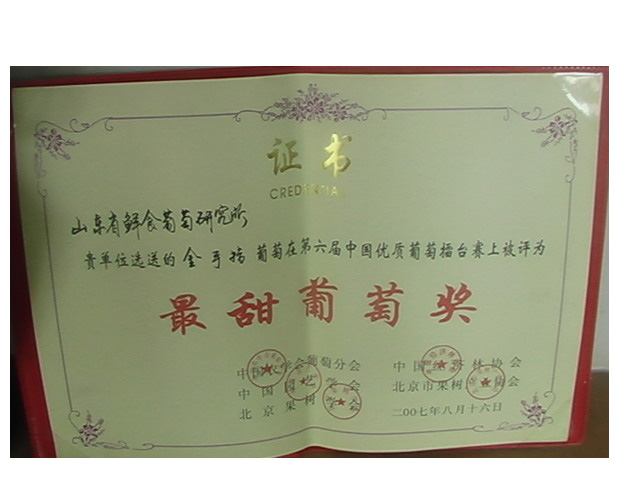 证书
CREDENTIAL
山东省鲜食葡萄研究所
贵单位选送的金手指葡萄在第六届中国优质葡萄擂台赛上被评为
最甜葡萄奖
中国农学会葡萄分会 中国经济林协会
中国园艺学会 北京市果树产业协会
北京果树学会
二00七年八月十六日